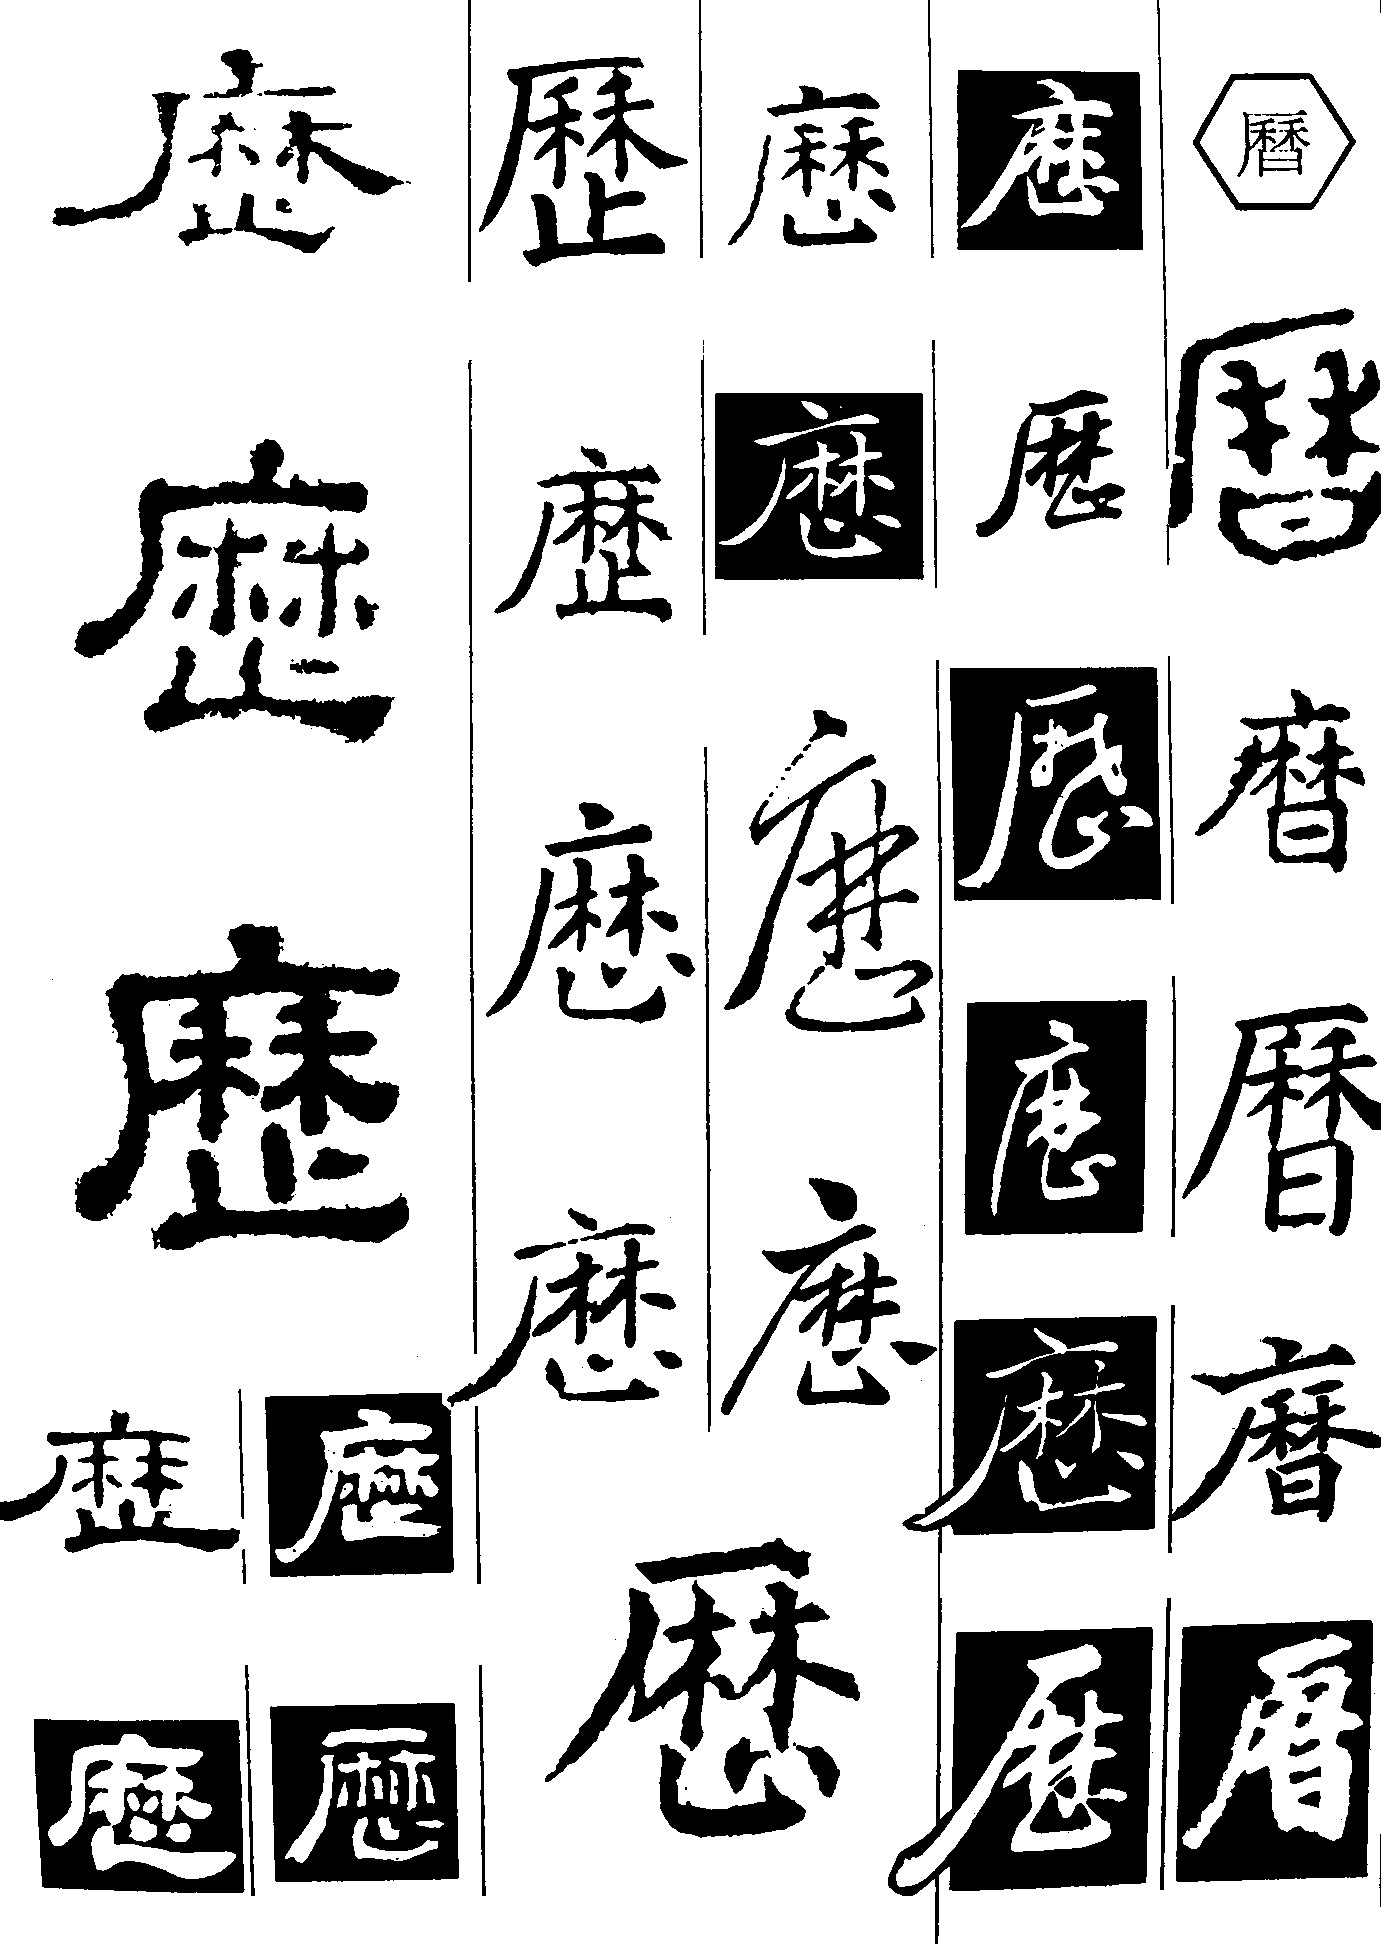 曆曆曆曆曆曆
歷歷歷歷歷歷
歷歷歷歷
歷歷歷歷
歷
歷歷歷
歷歷
歷歷